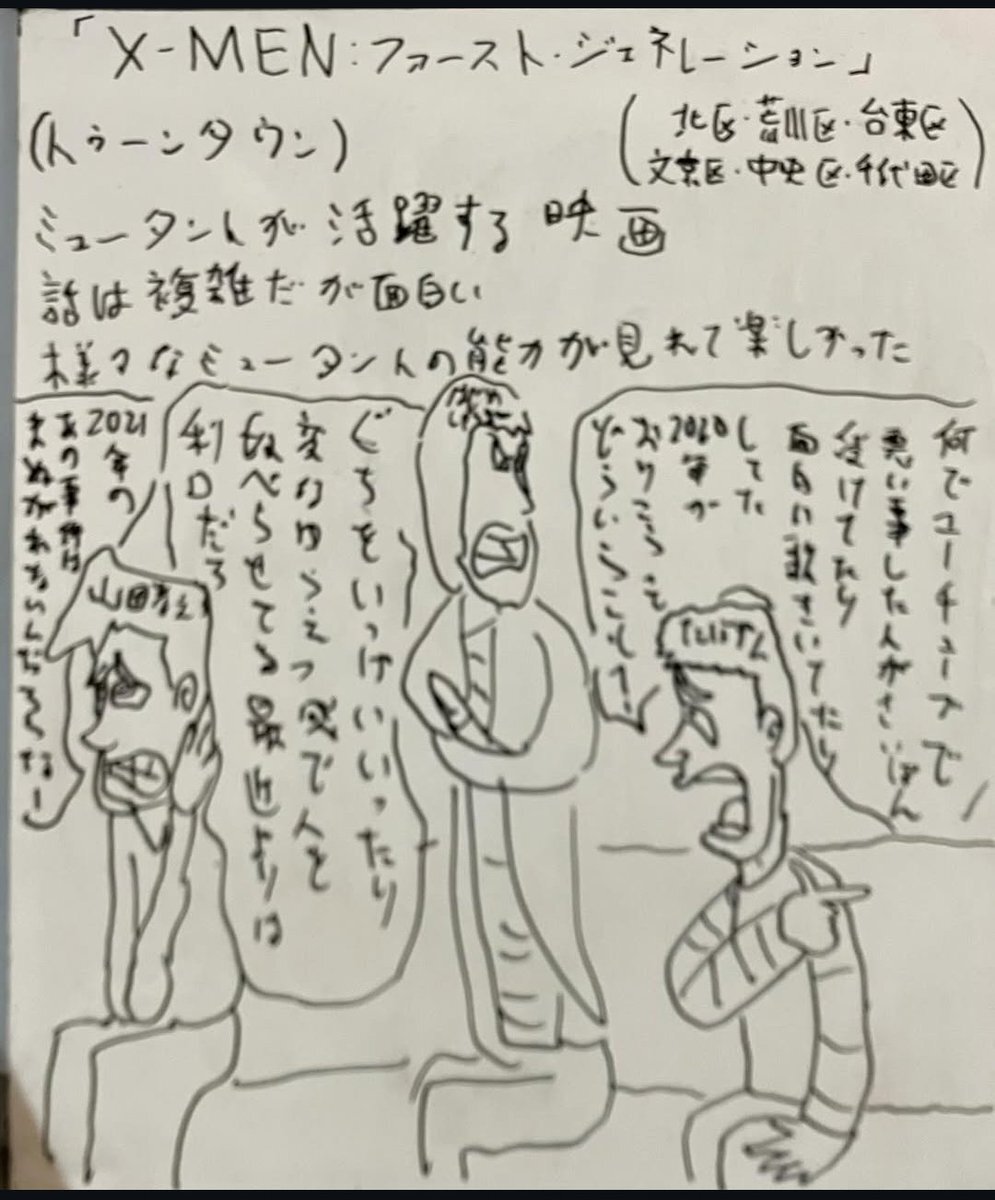 「X-MEN:ファースト・ジェネレーション」
(トゥーンタウン)
(北区・荒川区・台東区
文京区・中央区・千代田区)
ミュータントが活躍する映画
話は複雑だが面白い
様々なミュータントの能力が見れて楽しかった
何でユーチューブで
悪い事した人がさいばん
受けてたり
面白い
してた
2020年が
どういうこと!
ぐちをいっけいいいったり
変なゆうえつ感で人を
くらべらせてる最近よりは
利口だろ
2021
年の
あの事件は
まぬがれないんだろうなー
山田